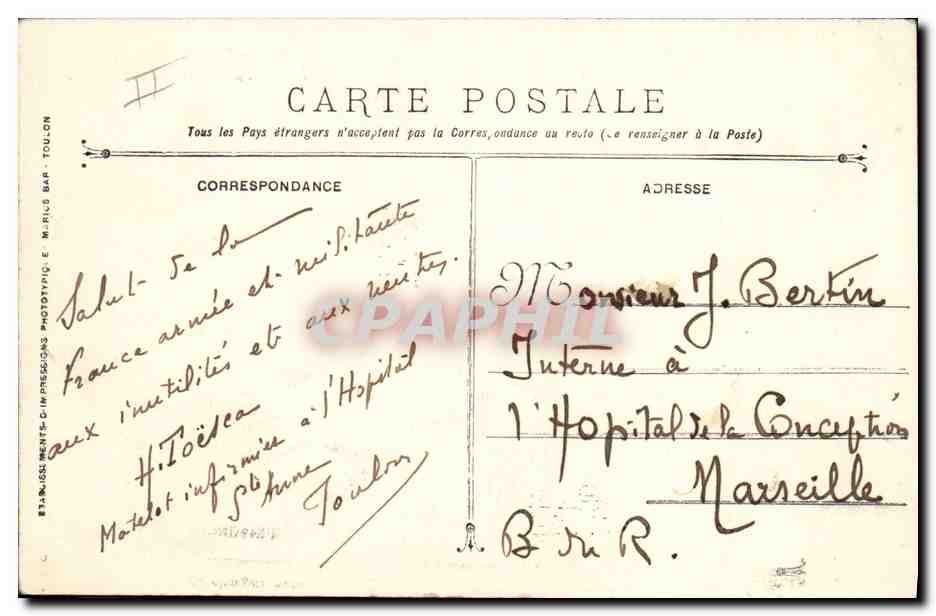 II
CARTE POSTALE
Tous les Pays étrangers n'acceptent pas la Correspondance au recto (Se renseigner à la Poste)
CORRESPONDANCE
Salut de la
France armée et militante
aux inutilités et aux neutres.
H. Toësca
Matelot infirmier à l'Hopital
Ste Anne
Toulon
ADRESSE
Monsieur J. Bertin
Interne à
l'Hopital de la Conception
Marseille
B du R.
ETABLISSEMENTS D'IMPRESSIONS PHOTOTYPIQUE MARIUS BAR - TOULON
CPAPHIL